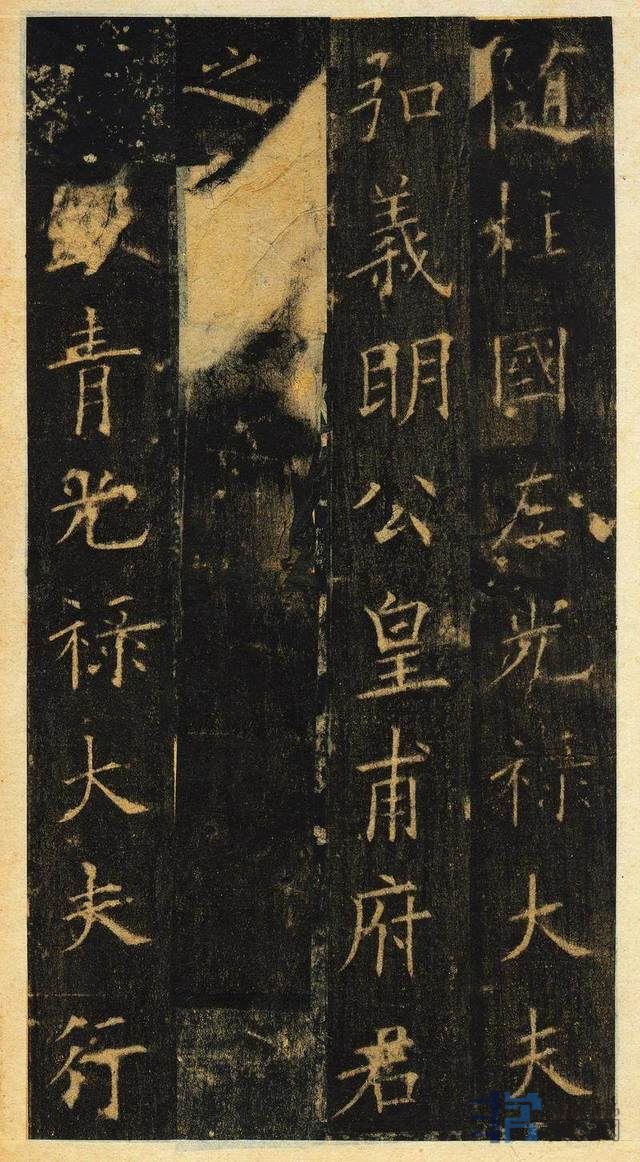 隨柱國左光禄大夫
弘義明公皇甫府君
之
青光禄大夫行